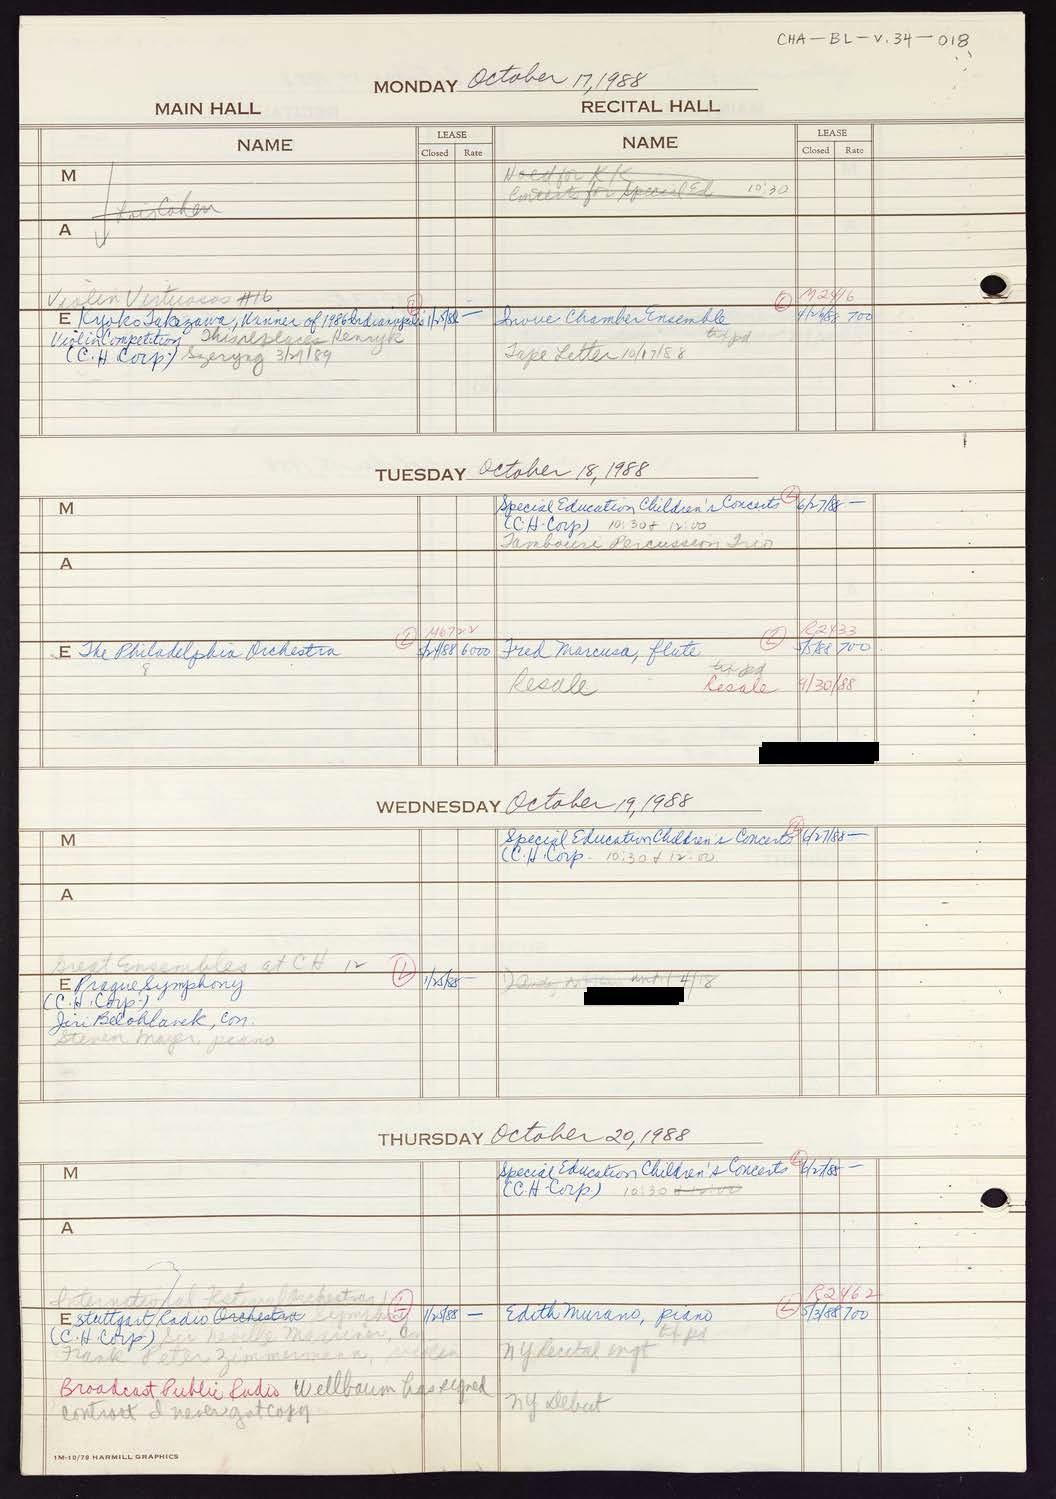 CHA-BL-V.34-018
MONDAY October 17, 1988
MAIN HALL RECITAL HALL
NAME LEASE Closed Rate NAME LEASE Closed Rate
M Hold for KK
Concerts for Special Ed 10:30
Cohen
A
Violin Virtuosos #16 M2446
E Kyoko Takezawa, Winner of 1986 Indianapolis 1/25/88 — Inoue Chamber Ensemble 700
Violin Competition This replaces Henryk
(C.H. Corp.) Szeryng 3/21/89 Tape Letter 10/17/88
TUESDAY October 18, 1988
M Special Education Children's Concerts 6/27/88 —
(C.H. Corp) 10:30 & 12:00
Tambouri Percussion Trio
A
M6722 R2433
E The Philadelphia Orchestra 5/24/88 6000 Fred Marcusa, flute 5/5/88 700
8
Resale Resale 9/30/88
WEDNESDAY October 19, 1988
M Special Education Children's Concerts 6/27/88 —
(C.H. Corp. 10:30 & 12:00
A
Great Ensembles at CH 12
E Prague Symphony 1/25/88 — until 4/18
(C.H. Corp.)
Jiri Belohlavek, con.
Steven Mayer, piano
THURSDAY October 20, 1988
M Special Education Children's Concerts 6/27/88 —
(C.H. Corp) 10:30 & 12:00
A
International Festival Orchestras 1 R2462
E Stuttgart Radio Orchestra Symphony 1/25/88 — Edith Murano, piano 5/3/88 700
(C.H. Corp) Sir Neville Marriner, Con
Frank Peter Zimmermann, violin NY Recital engt
Broadcast Public Radio Wellbaum has signed
contract I never got copy NY Debut
1M-10/79 HARMILL GRAPHICS